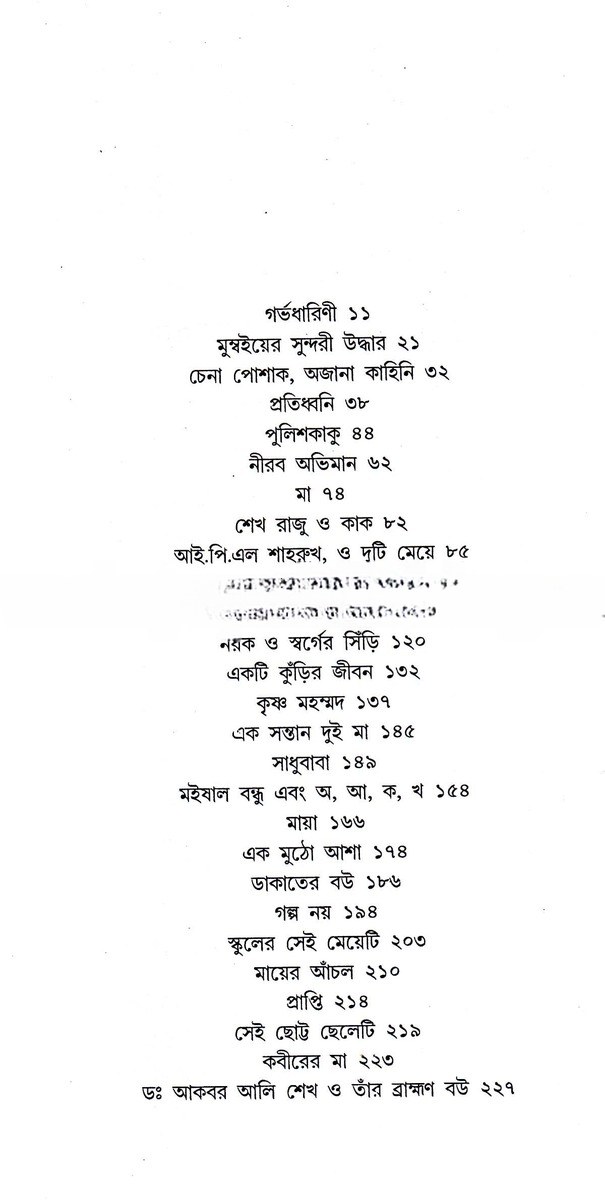 গর্ভধারিণী ১১
মুম্বইয়ের সুন্দরী উদ্ধার ২১
চেনা পোশাক, অজানা কাহিনি ৩২
প্রতিধ্বনি ৩৮
পুলিশকাকু ৪৪
নীরব অভিমান ৬২
মা ৭৪
শেখ রাজু ও কাক ৮২
আই.পি.এল শাহরুখ, ও দুটি মেয়ে ৮৫
নরক ও স্বর্গের সিঁড়ি ১২০
একটি কুঁড়ির জীবন ১৩২
কৃষ্ণ মহম্মদ ১৩৭
এক সন্তান দুই মা ১৪৫
সাধুবাবা ১৪৯
মইষাল বন্ধু এবং অ, আ, ক, খ ১৫৪
মায়া ১৬৬
এক মুঠো আশা ১৭৪
ডাকাতের বউ ১৮৬
গল্প নয় ১৯৪
স্কুলের সেই মেয়েটি ২০৩
মায়ের আঁচল ২১০
প্রাপ্তি ২১৪
সেই ছোট্ট ছেলেটি ২১৯
কবীরের মা ২২৩
ডঃ আকবর আলি শেখ ও তাঁর ব্রাহ্মণ বউ ২২৭